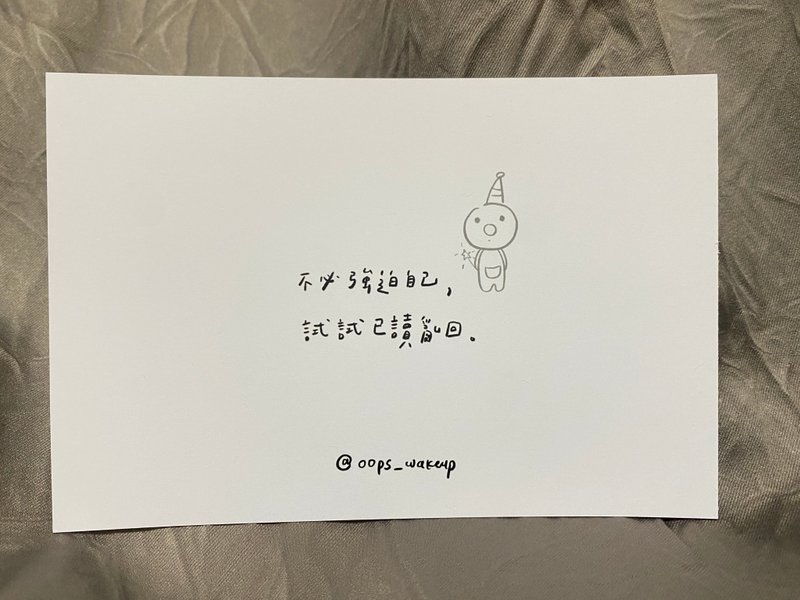 不必強迫自己，
試試已讀亂回。
@oops_wakeup